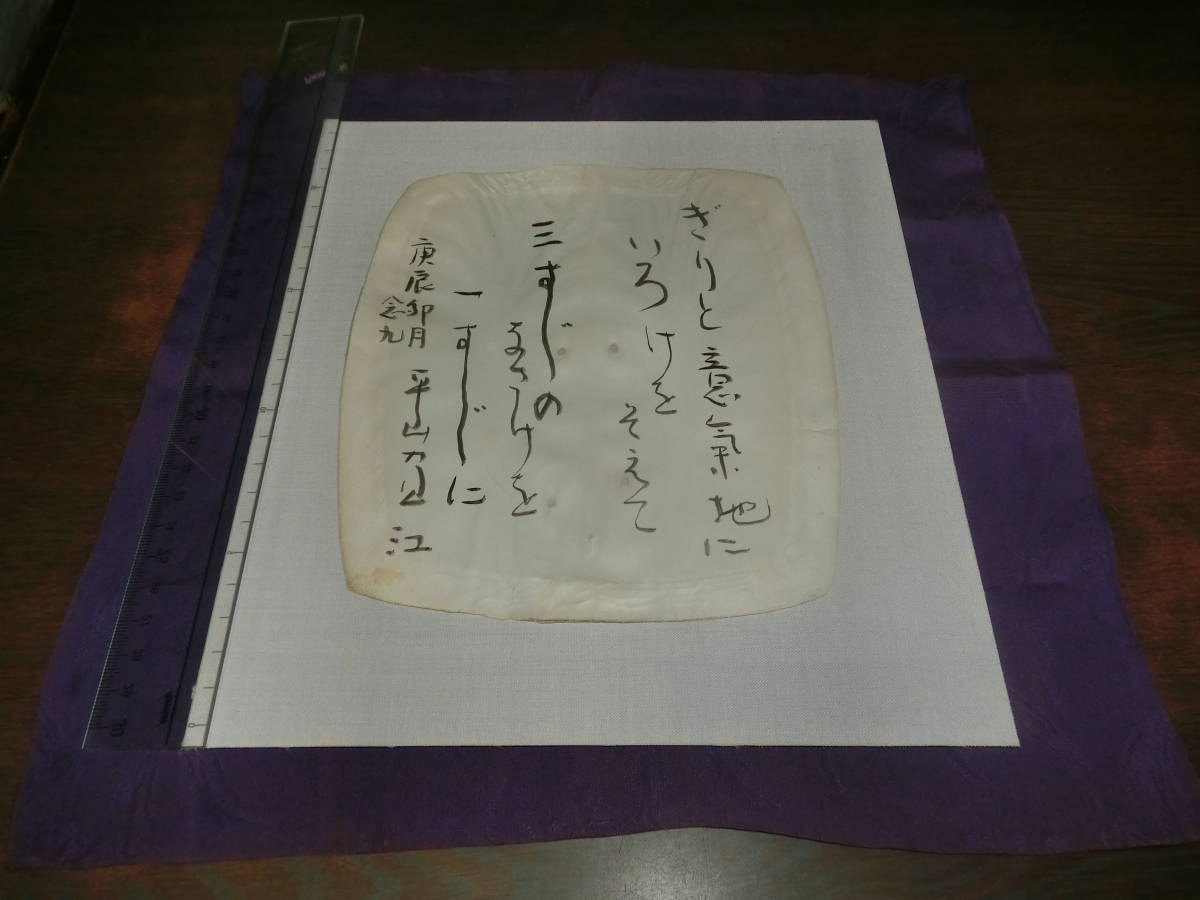 ぎりと意氣地に
いろけを
そえて
三すじの
なさけを
一すじに
庚辰卯月
念九
平山
江